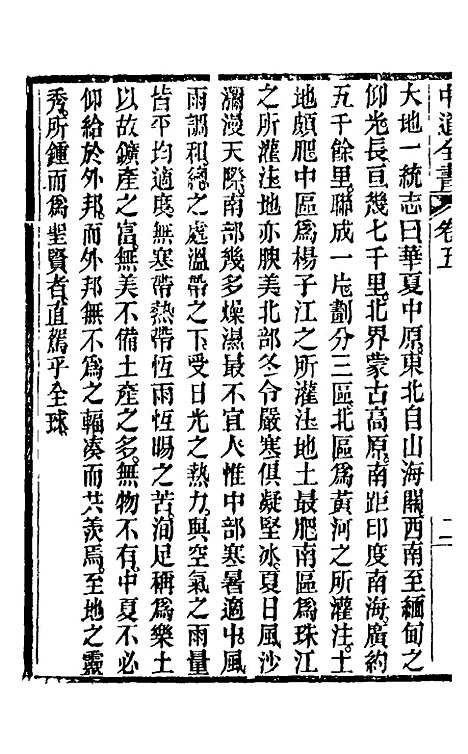 中道全書 卷五 二
大地一統志曰華夏中原東北自山海關西南至緬甸之
仰光長亘幾七千里北界蒙古高原南距印度南海廣約
五千餘里聯成一片劃分三區北區為黃河之所灌注土
地頗肥中區為楊子江之所灌注地土最肥南區為珠江
之所灌注地亦腴美北部冬令嚴寒俱凝堅冰夏日風沙
瀰漫天際南部幾多燥濕最不宜人惟中部寒暑適中風
雨調和總之處溫帶之下受日光之熱力與空氣之雨量
皆平均適度無寒帶熱帶恆雨恆暘之苦洵足稱為樂土
以故鑛產之富無美不備土產之多無物不有中夏不必
仰給於外邦而外邦無不為之輻湊而共羨焉至地之靈
秀所鍾而為聖賢者直駕乎全球